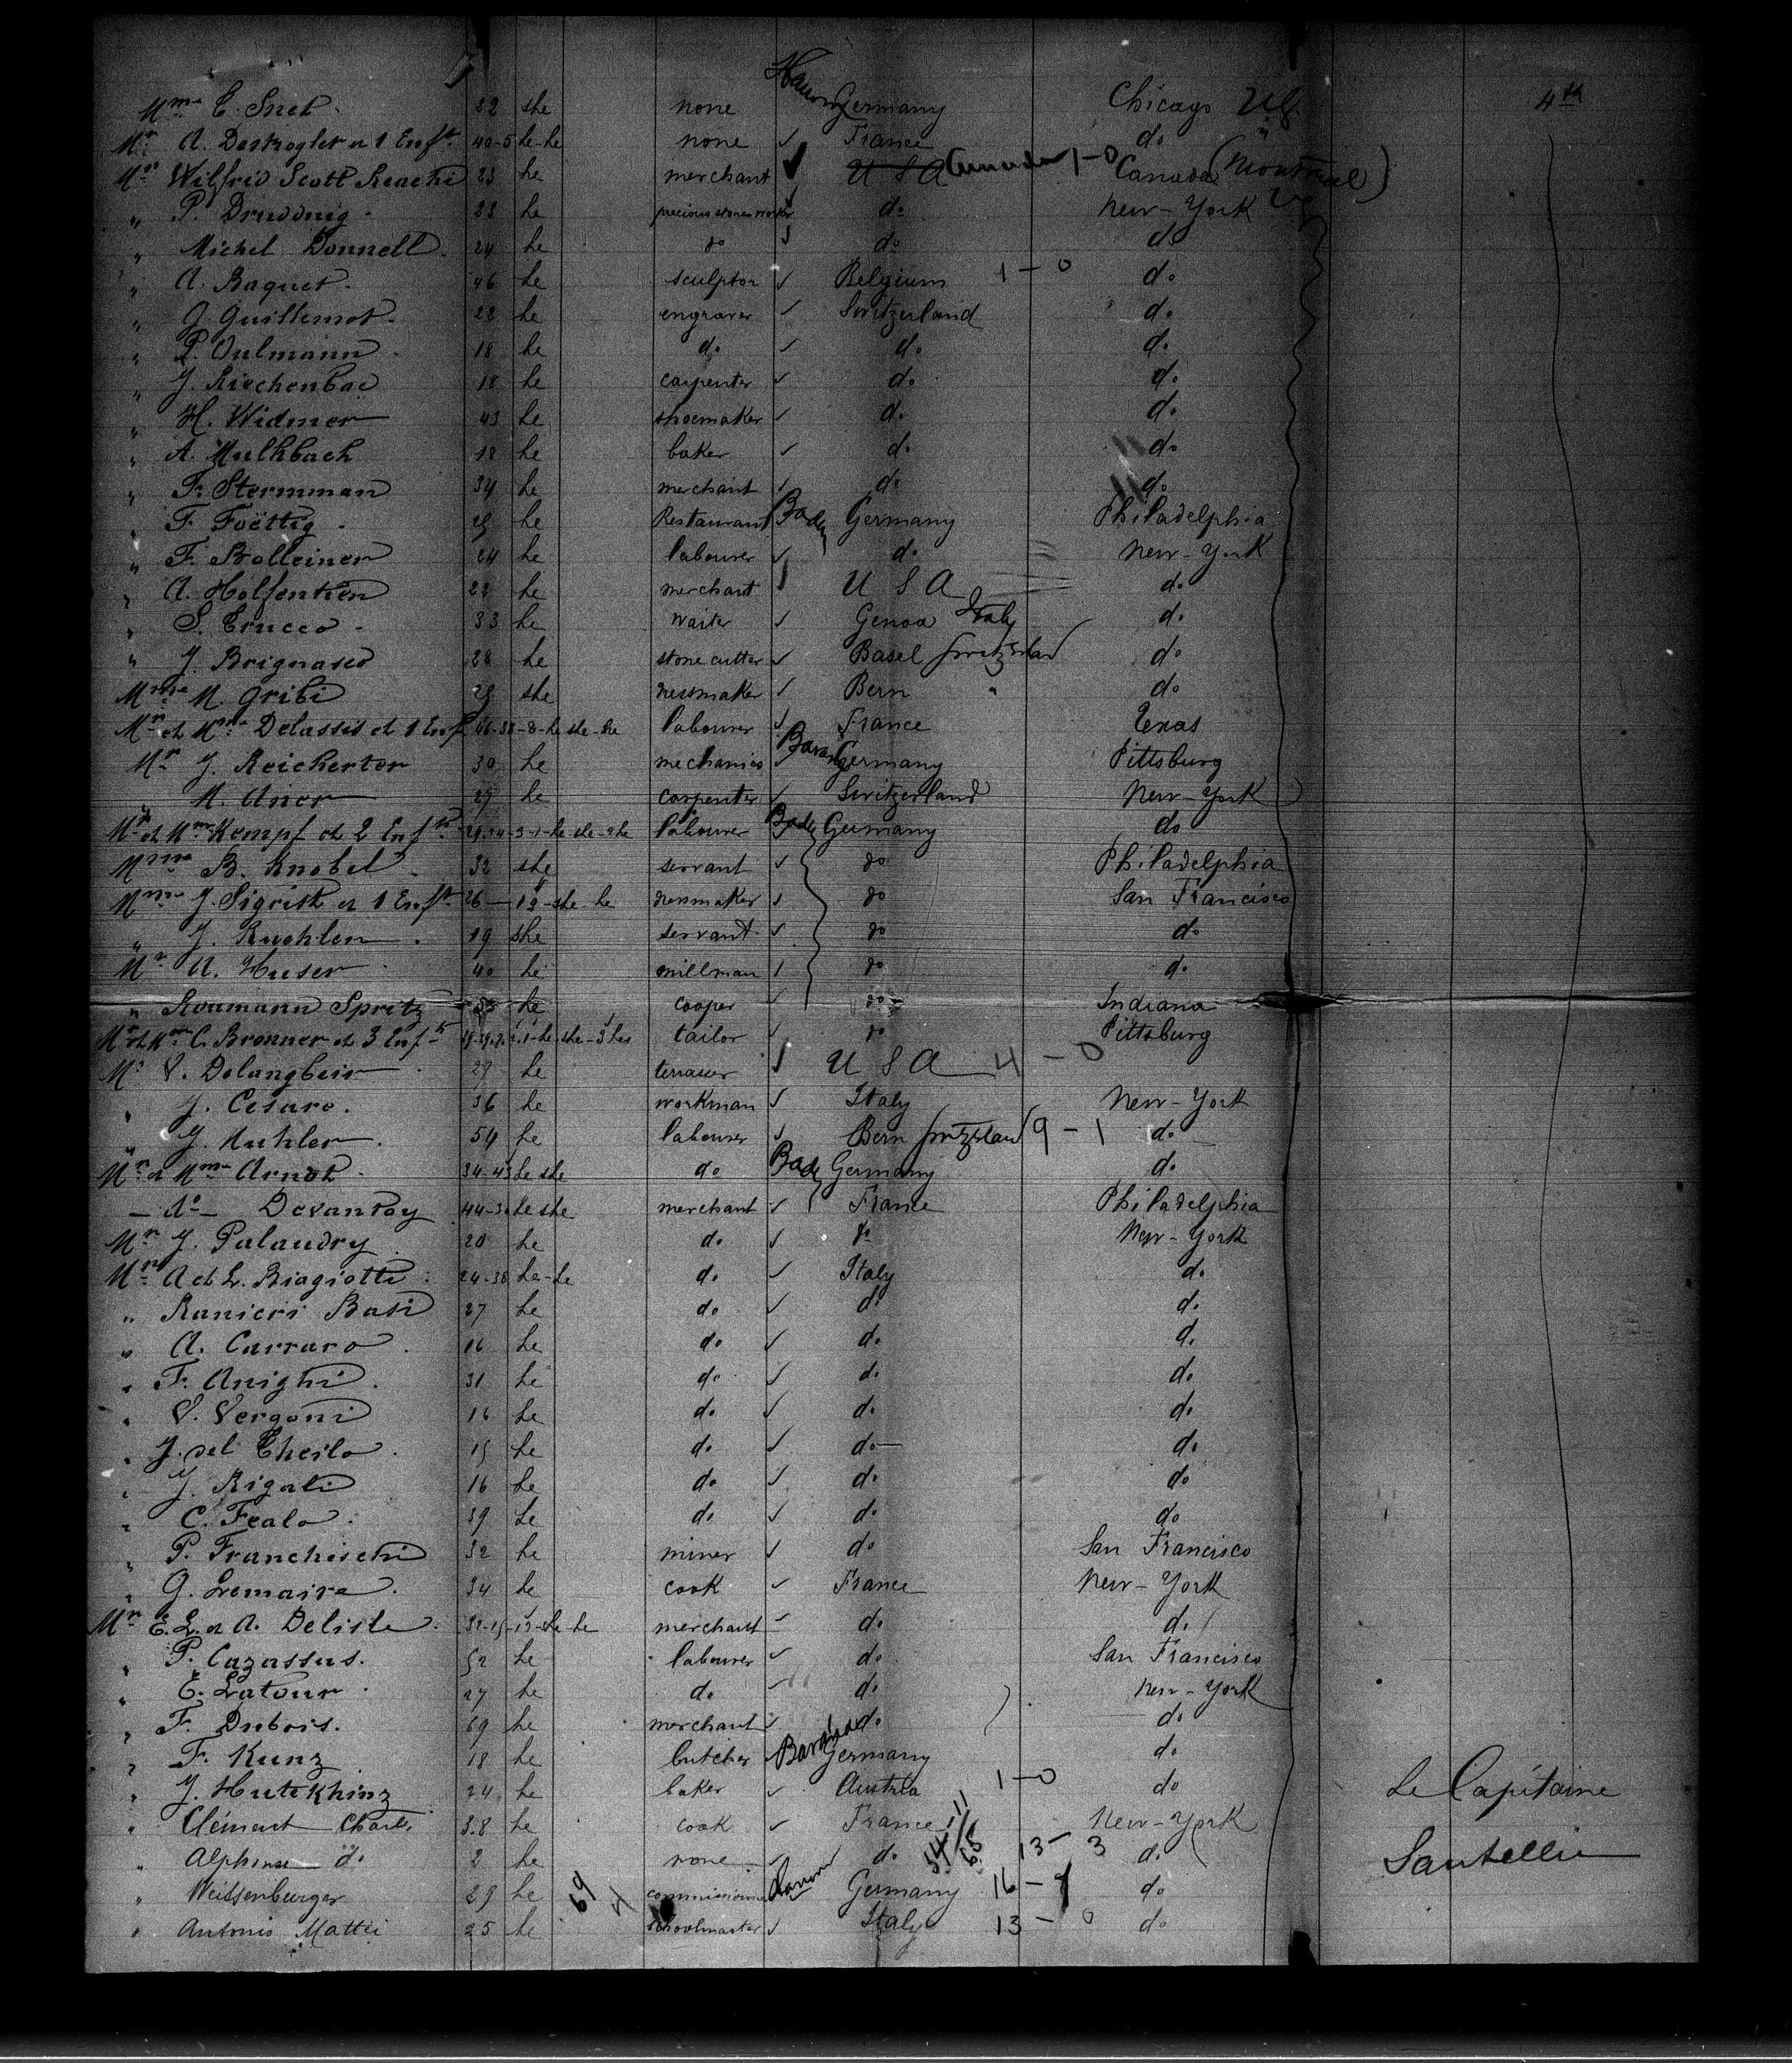 Mme E. Snet 22 she none Hanover Germany Chicago 4th
Mr A. Destroglet et 1 Enft 40-5 he-he none France do
Mr Wilfrid Scott 23 he merchant U S A Canada 1-0 Canada (Montreal)
" P. Druddnig 23 he precious stones worker do New-York
" Michel Donnell 24 he do do do
" A. Baquet 46 he sculptor Belgium 1-0 do
" J. Guillemot 22 he engraver Switzerland do
" P. Vulmann 18 he do do do
" J. Kirchenbac 18 he carpenter do do
" H. Widmer 43 he shoemaker do do
" A. Mulhbach 18 he baker do do
" F. Stermman 34 he merchant do do
" F. Foëttig he Restaurant Baden Germany Philadelphia
" F. Bolleiner 24 he labourer do New-York
" A. Holfentien 22 he merchant U S A do
" S. Crucco 33 he waiter Genoa Italy do
" J. Brignasco 28 he stone cutter Basel Switzerland do
Mme M. Gribi she Bern " do
Mr et Mme Delassis et 1 Enf 46-38-8-he she-she labourer France Texas
Mr J. Reichertor 30 he mechanics Germany Pittsburg
" M. Aner 27 he carpenter Switzerland New-York
Mr et Mme Kempf et 2 Enfts labourer Baden Germany do
Mme B. Knobel 32 she servant do Philadelphia
Mme J. Sigrist et 1 Enft 26 she he dressmaker do San Francisco
" J. Kuehlen 19 she servant do do
Mr A. Huser 40 he millman do do
" Roumann Spritz he cooper do Indiana
Mr et Mme C. Bronner et 3 Enfts tailor do Pittsburg
Mr V. Delangbeir 27 he terrasier U S A 4-0
" J. Cesaro 36 he workman Italy New-York
" J. Kuhler 54 he labourer Bern Switzerland 9-1 do
Mr et Mme Arnot 34-43 he she do Baden Germany do
-do- Devantoy he she merchant France Philadelphia
Mr J. Palaudry 20 he do do New-York
Mr A et L. Biagiotti 24-38 he-he do Italy do
" Ranieri Basi 27 he do do do
" A. Carraro 16 he do do do
" F. Anighi 31 he do do do
" V. Vergoni 16 he do do do
" J. del Chesla 15 he do do do
" J. Rigali 16 he do do do
" C. Feala 39 he do do do
" P. Franchischi 32 he miner do San Francisco
" G. Lemaire 34 he cook France New-York
Mr E. L. et A. Delisle merchant do do
" P. Cazassus 52 he labourer do San Francisco
" E. Latour 27 he do do New-York
" F. Dubois 69 he merchant do do
" F. Kunz 18 he butcher Bavaria Germany do
" J. Hutekhinz 24 he baker Austria 1-0 do Le Capitaine
" Clément Charles 38 he cook France New-York
" Alphonse do 2 he none do 13-3 do Santelli
" Weissenburger 29 he 69 Germany 16- do
" Antonio Mattei 25 he schoolmaster Italy 13-0 do